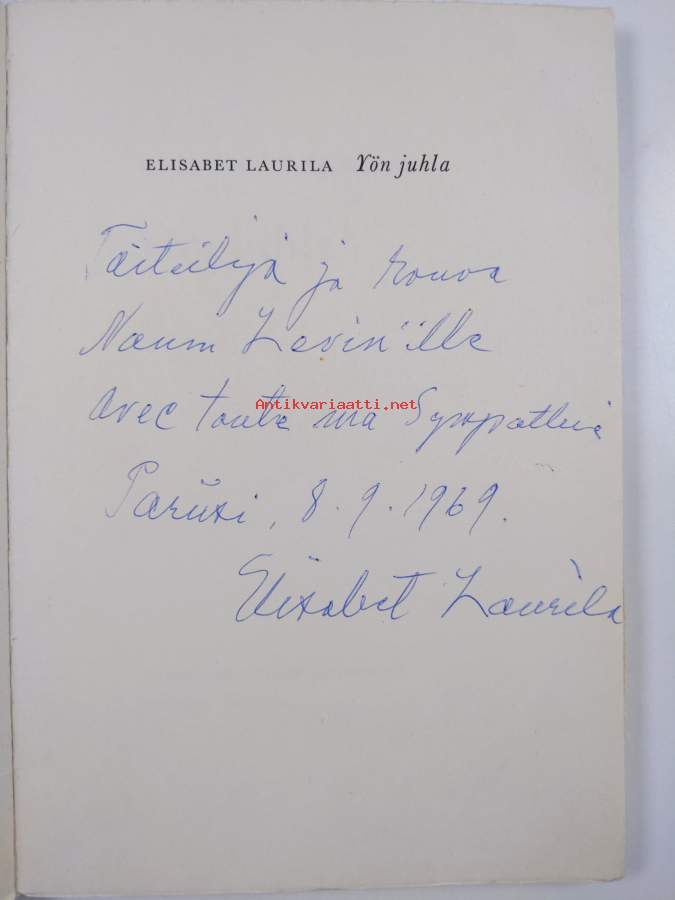 ELISABET LAURILA Yön juhla
Taiteilija ja rouva
Naum Levin'ille
Antikvariaatti.net
avec toute ma Sympathie
Pariisi, 8.9.1969.
Elisabet Laurila